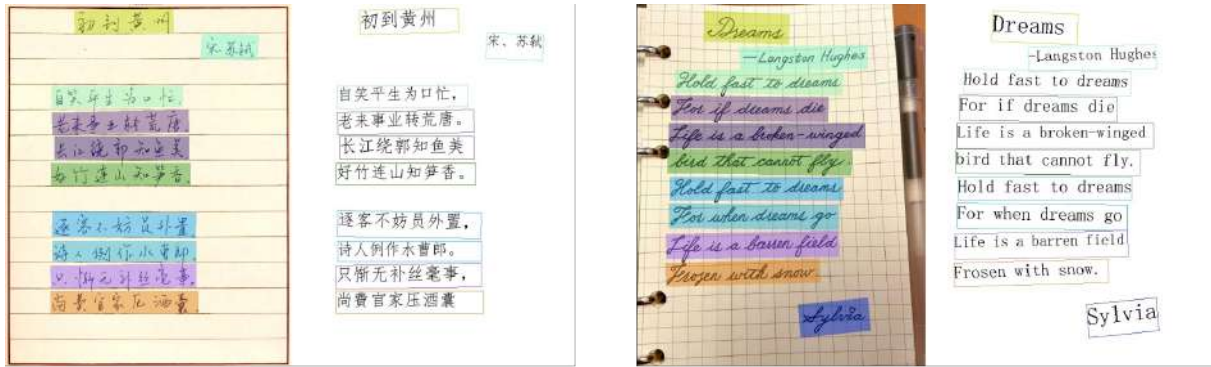 初到黄州
宋.苏轼
自笑平生为口忙,
老来事业转荒唐.
长江绕郭知鱼美
好竹连山知笋香.
逐客不妨员外置
诗人例作水曹郎.
只惭无补丝毫事,
尚费官家压酒囊.
初到黄州
宋、苏轼
自笑平生为口忙，
老来事业转荒唐。
长江绕郭知鱼美
好竹连山知笋香。
逐客不妨员外置，
诗人例作水曹郎。
只惭无补丝毫事，
尚費官家压酒囊
Dreams
—Langston Hughes
Hold fast to dreams
For if dreams die
Life is a broken-winged
bird that cannot fly.
Hold fast to dreams
For when dreams go
Life is a barren field
Frozen with snow.
Sylvia
Dreams
-Langston Hughes
Hold fast to dreams
For if dreams die
Life is a broken-winged
bird that cannot fly.
Hold fast to dreams
For when dreams go
Life is a barren field
Frosen with snow.
Sylvia